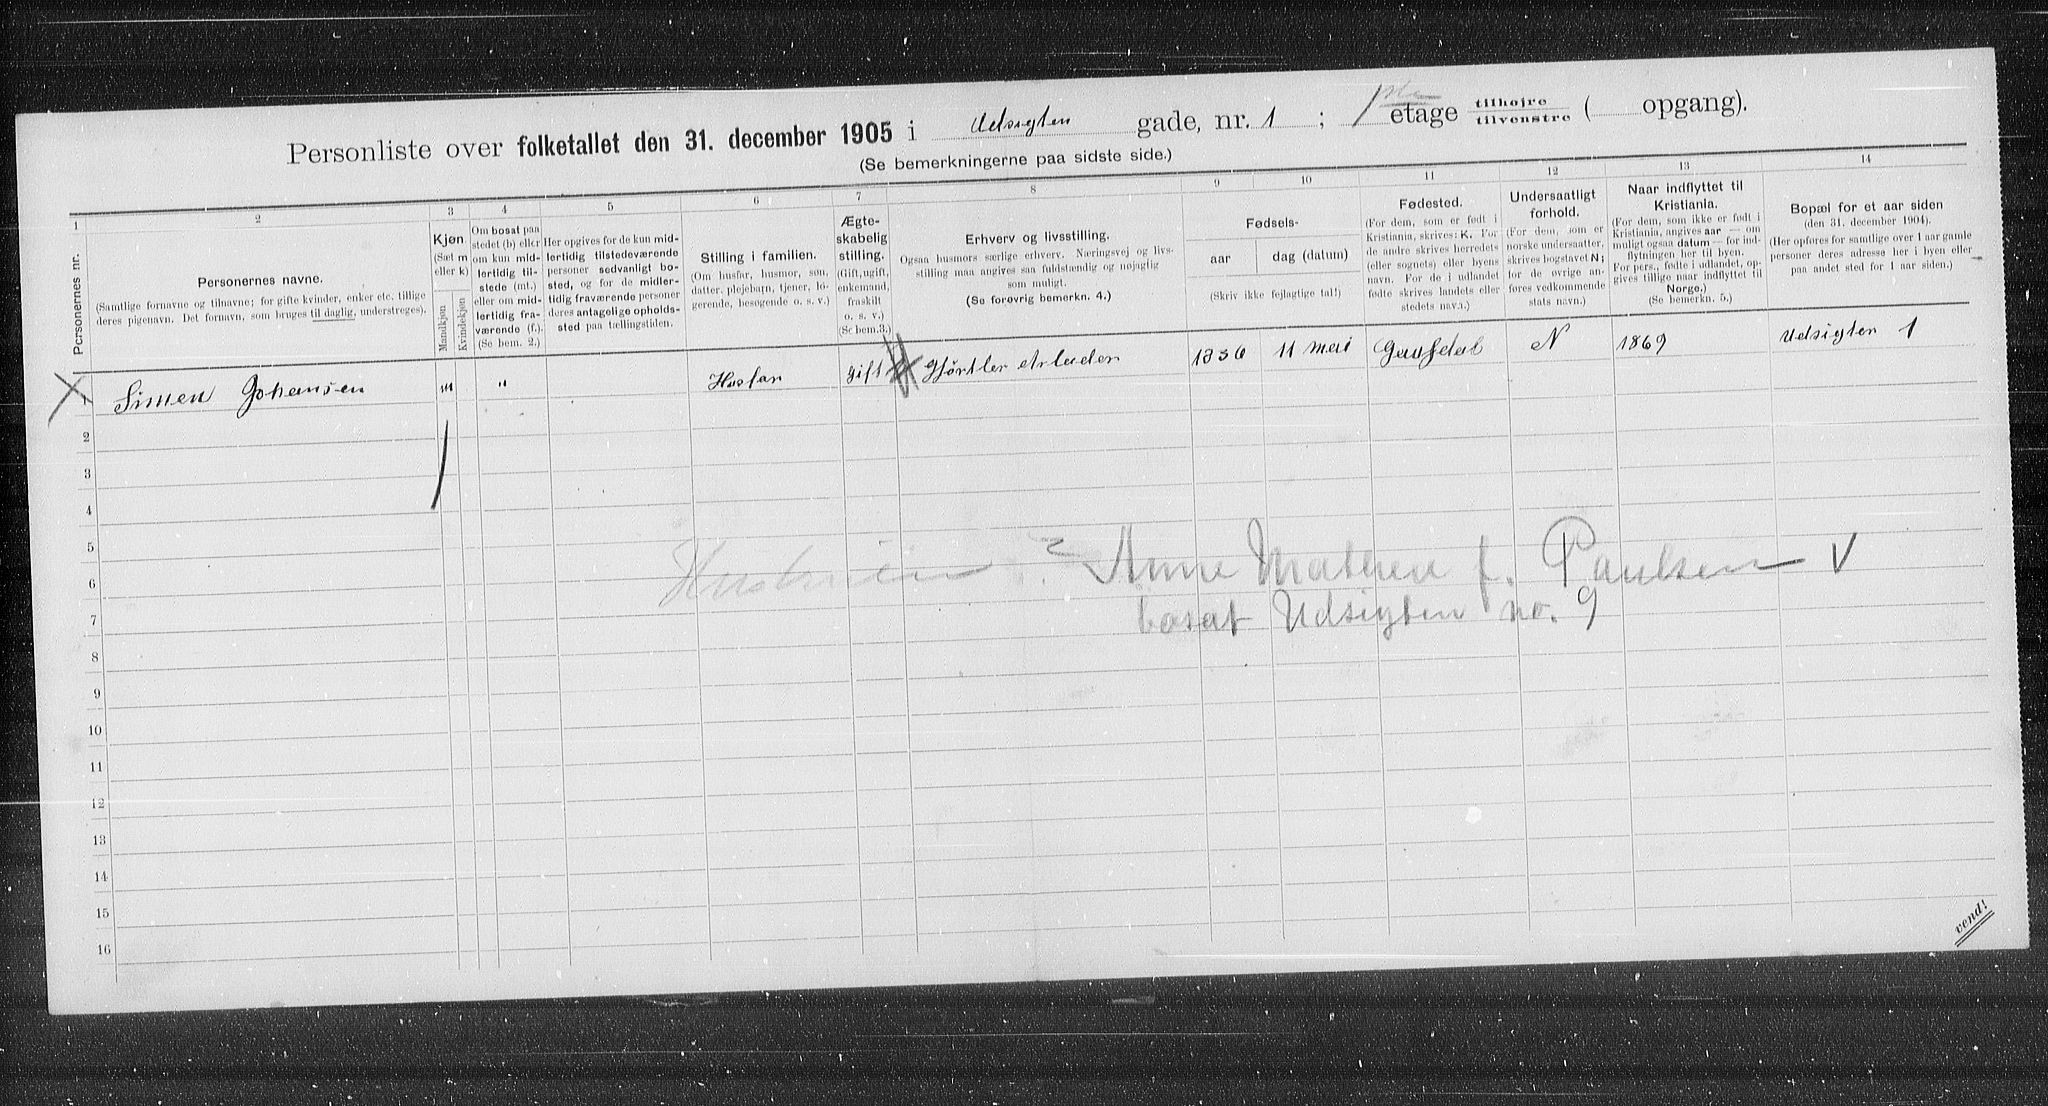 Personliste over folketallet den 31. december 1905 i Udsigten gade, nr. 1 ; 1ste etage tilhøjre tilvenstre ( opgang).
(Se bemerkningerne paa sidste side.)
1 2 3 4 5 6 7 8 9 10 11 12 13 14
Personernes nr.
Personernes navne.
(Samtlige fornavne og tilnavne; for gifte kvinder, enker etc. tillige
deres pigenavn. Det fornavn, som bruges til daglig, understreges).
Kjøn
(Sæt m
eller k)
Mandkjøn
Kvindekjøn
Om bosat paa
stedet (b) eller
om kun mid-
lertidig til-
stede (mt.)
eller om mid-
lertidig fra-
værende (f.).
(Se bem. 2.)
Her opgives for de kun mid-
lertidig tilstedeværende
personer sedvanligt bo-
sted, og for de midler-
tidig fraværende personer
deres antagelige opholds-
sted paa tællingstiden.
Stilling i familien.
(Om husfar, husmor, søn,
datter, plejebarn, tjener, lo-
gerende, besøgende o. s. v.)
Ægte-
skabelig
stilling.
(Gift, ugift,
enkemand,
fraskilt
o. s. v.)
(Se bem.3.)
Erhverv og livsstilling.
Ogsaa husmors særlige erhverv. Næringsvej og livs-
stilling maa angives saa fuldstændig og nøjaglig
som muligt.
(Se forøvrig bemerkn. 4.)
Fødsels-
aar dag (datum)
(Skriv ikke fejlagtige tal!)
Fødested.
(For dem, som er født i
Kristiania, skrives: K. For
de andre skrives herredets
(eller sognets) eller byens
navn. For de i udlandet
fødte skrives landets eller
stedets navn.)
Undersaatligt
forhold.
(For dem, som er
norske undersaatter,
skrives bogstavet N;
for de øvrige an-
føres vedkommende
stats navn.)
Naar indflyttet til
Kristiania.
(For dem, som ikke er født i
Kristiania, angives aar — om
muligt ogsaa datum — for ind-
flytningen her til byen.
For pers., fødte i udlandet, op-
gives tillige naar indflyttet til
Norge.)
(Se bemerkn. 5.)
Bopæl for et aar siden
(den 31. december 1904).
(Her opføres for samtlige over 1 aar gamle
personer deres adresse her i byen eller
paa andet sted for 1 aar siden.)
1 Simen Johansen m " Husfar Gift Arbeider 1836 11 Mai Gausdal N 1869 Udsigten 1
2
3
4
5
6
Hustruen: Anne Mathea f. Paulsen V
7
bosat Udsigten no. 9
8
9
10
11
12
13
14
15
16
vend!